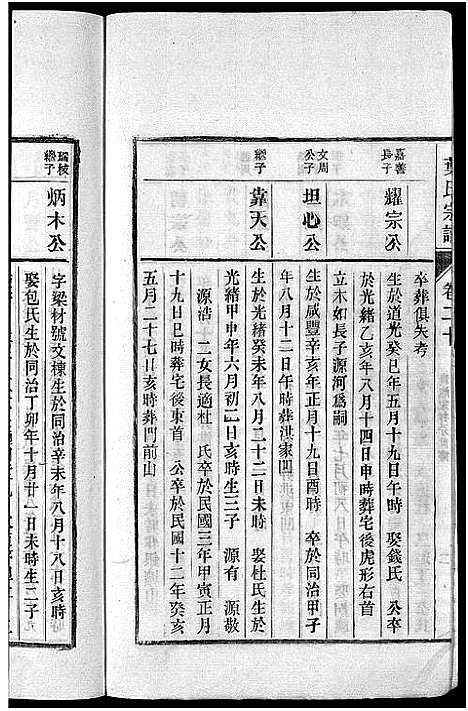 氏宗譜
卷二十
卒葬俱失考
嘉善長子
耀宗公
生於道光癸巳年五月十九日午時 娶錢氏 公卒
於光緒乙亥年八月十四日申時葬宅後虎形右首
立木如長子源河爲嗣
文周公子
坦心公
生於咸豐辛亥年正月十九日酉時 卒於同治甲子
年八月十二日午時葬洪家四
繼子
靠天公
生於光緒癸未年八月二十二日未時 娶杜氏生於
光緒甲申年六月初二日亥時生三子 源有 源敬
源浩 二女長適杜 氏卒於民國三年甲寅正月
十九日巳時葬宅後東首 公卒於民國十二年癸亥
五月二十七日亥時葬門前山
瑞校繼子
炳木公
字梁材號文棟生於同治辛未年八月十八日亥時
娶包氏生於同治丁卯年十月廿一日未時生二子